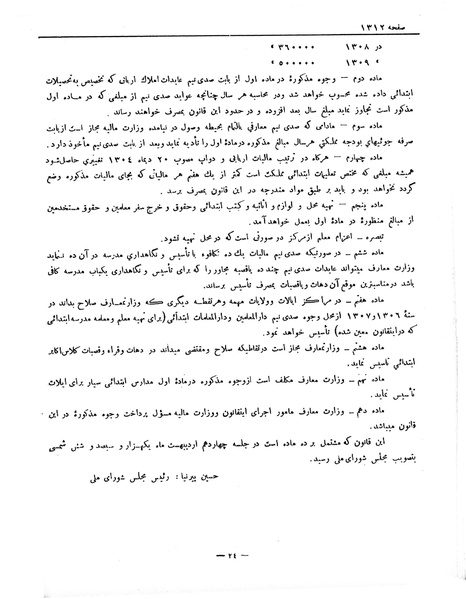 صفحه ١٣١٢
در ١٣٠٨ ٣٦٠٠٠٠ »
» ١٣٠٩ ٥٠٠٠٠٠ »
ماده دوم – وجوه مذکورهٔ در ماده اول از بابت صدی نیم عایدات املاک اربابی که تخصیص به تحصیلات
ابتدائی داده شده محسوب خواهد شد ودر محاسبه هر سال چنانچه عواید صدی نیم از مبلغی که در ماده اول
مذکور است تجاوز نماید مبلغ سال بعد افزوده و در حدود این قانون بمصرف خواهند رساند .
ماده سوم – مادامی که صدی نیم معارفی بالتمام بحیطه وصول در نیامده وزارت مالیه مجاز است از بابت
صرفه جوئیهای بودجه مملکتی هر سال مبالغ مذکوره در مادهٔ اول را تأدیه نماید وبعد از بابت صدی نیم مأخوذ دارد .
ماده چهارم – هرگاه در ترتیب مالیات اربابی و دواب مصوب ٢٠ دیماه ١٣٠٤ تغییری حاصل شود
همیشه مبلغی که مختص تعلیمات ابتدائی مملکت است کمتر از یک هفتم هر مالیاتی که بجای مالیات مذکوره وضع
گردد نخواهد بود و باید بر طبق مواد مندرجه در این قانون بمصرف برسد .
ماده پنجم – تهیه محل و لوازم و اثاثیه و کتب ابتدائی وحقوق و خرج سفر معلمین و حقوق مستخدمین
از مبالغ منظورهٔ در مادهٔ اول بعمل خواهد آمد .
تبصره – اعزام معلم از مرکز در صورتی است که در محل تهیه نشود .
ماده ششم – در صورتیکه صدی نیم مالیات یک ده تکافوء با تأسیس و نگاهداری مدرسه در آن ده ننماید
وزارت معارف میتواند عایدات صدی نیم چند ده یا قصبه مجاور را که برای تأسیس و نگاهداری یکباب مدرسه کافی
باشد در مناسبترین موقع آن دهات و یا قصبات بمصرف تأسیس برساند .
ماده هفتم – در مراکز ایالات وولایات مهمه وهر نقطه دیگری که وزارت معارف صلاح بداند در
سنهٔ ١٣٠٦ و ١٣٠٧ از محل وجوه صدی نیم دارالمعلمین ودارالمعلمات ابتدائی (برای تهیه معلم و معلمه مدرسه ابتدائی
که در اینقانون معین شده) تأسیس خواهد نمود .
ماده هشتم – وزارت معارف مجاز است در نقاطیکه صلاح و مقتضی میداند در دهات وقراء وقصبات کلاس اکابر
ابتدائی تأسیس نماید .
ماده نهم – وزارت معارف مکلف است از وجوه مذکوره در مادهٔ اول مدارس ابتدائی سیار برای ایلات
تأسیس نماید .
ماده دهم – وزارت معارف مامور اجرای اینقانون ووزارت مالیه مسؤل پرداخت وجوه مذکورهٔ در این
قانون میباشد .
این قانون که مشتمل بر ده ماده است در جلسه چهاردهم اردیبهشت ماه یکهزار و سیصد و شش شمسی
بتصویب مجلس شورای ملی رسید .
حسین پیرنیا : رئیس مجلس شورای ملی
– ٢٤ –